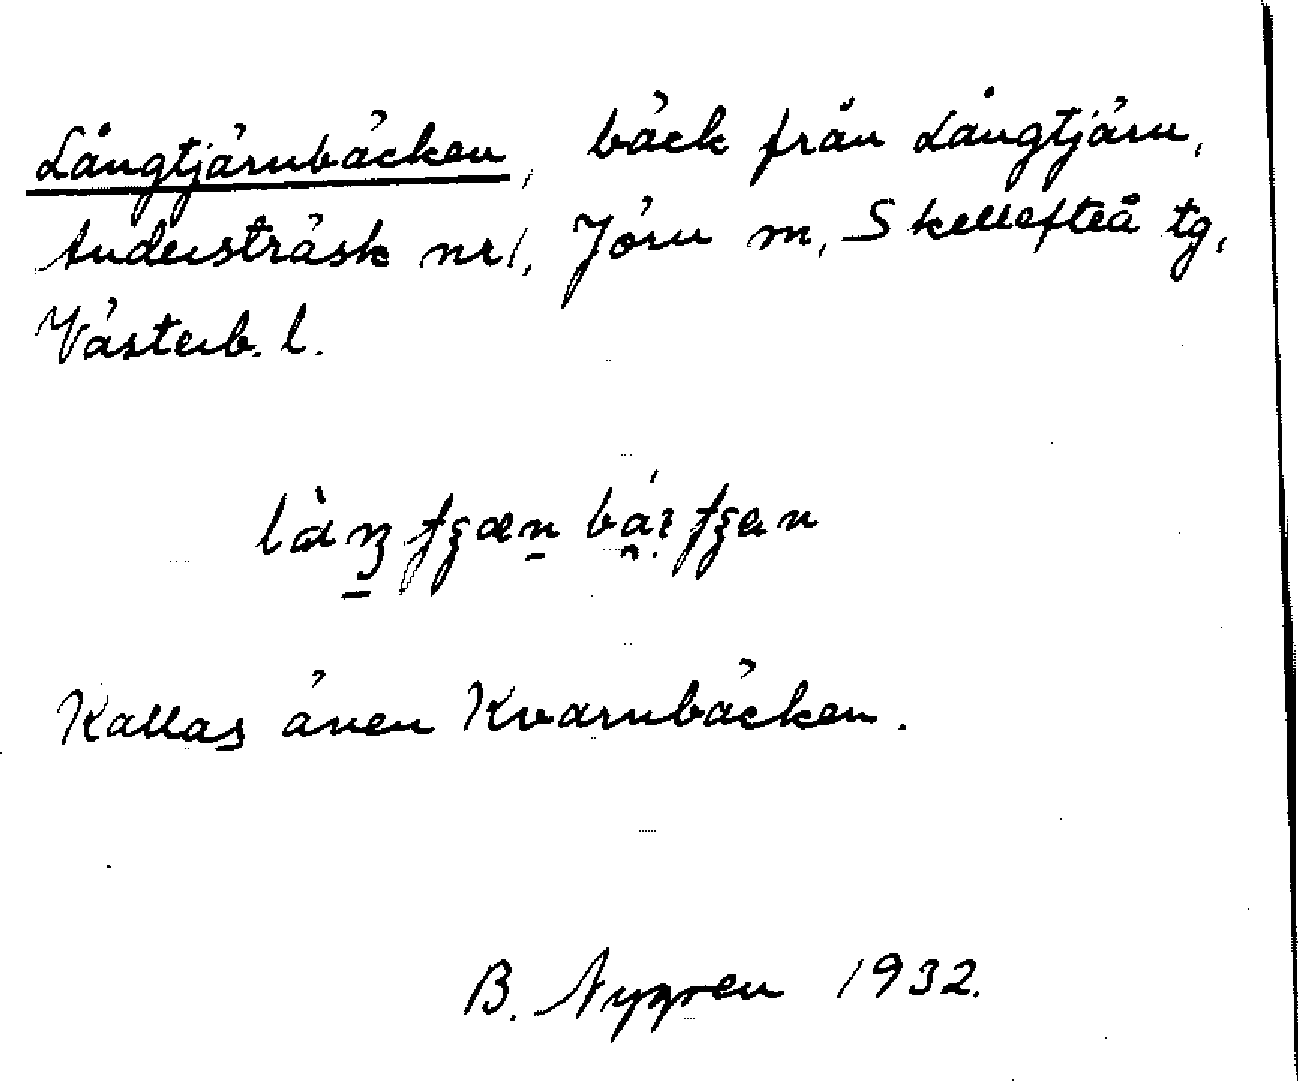 Långtjärnbäcken, bäck från Långtjärn,
Andersträsk nr 1, Jörn m, Skellefteå tg,
Västerb. l.
Kallas även Kvarnbäcken.
B. Nygren 1932.